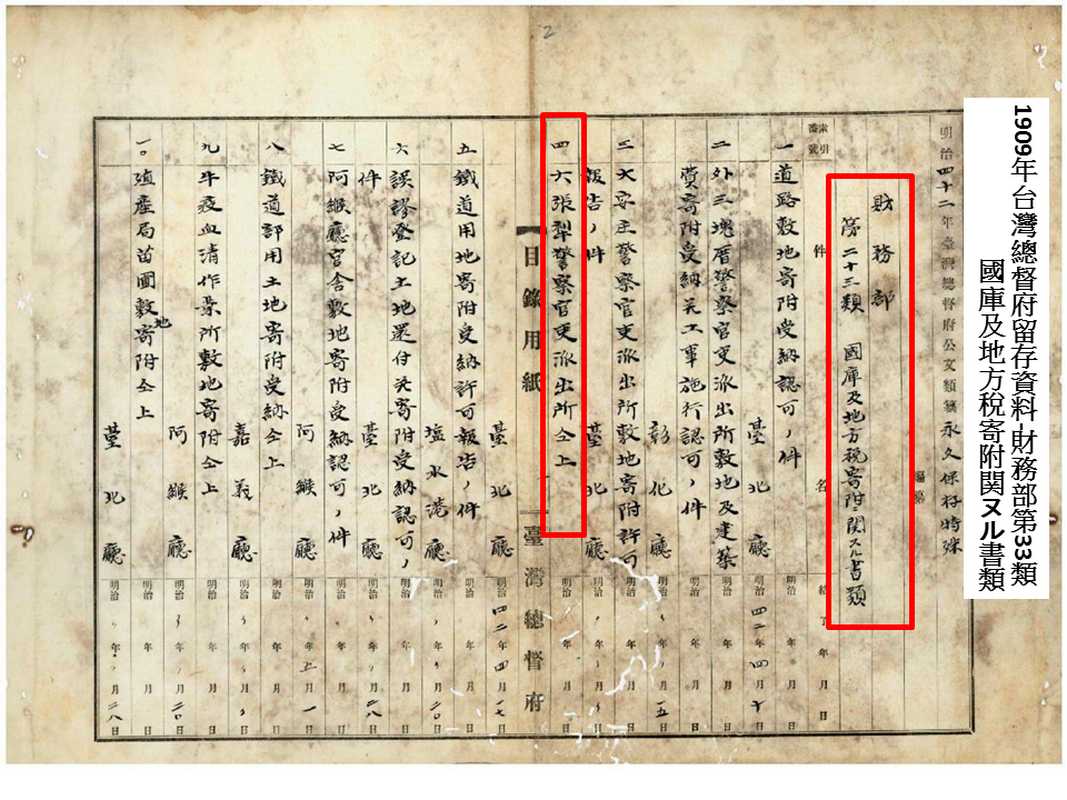 1909年台灣總督府留存資料-財務部第33類
國庫及地方稅寄附関ヌル書類
明治四十二年臺灣總督府公文類纂永久保存特殊
財務部
第二十三類 國庫及地方稅寄附ニ関スル書類
索引番號 件名 結了年月日
一 道路敷地寄附受納認可ノ件 明治 年 月 日
臺北廳 明治四二年四月十日
二 外三塊厝警察官吏派出所敷地及建築 明治 年 月 日
費寄附受納并工事施行認可ノ件 明治 年 月 日
彰化廳 明治〃年〃月一五日
三 大安庄警察官吏派出所敷地寄附許可 明治 年 月 日
報告ノ件 臺北廳 明治〃年〃月〃日
四 六張犁警察官吏派出所仝上 明治〃年 月 日
目錄用紙 臺灣總督府
臺北廳 明治四二年四月一七日
五 鐵道用地寄附受納許可報告ノ件 明治 年 月 日
塩水港廳 明治〃年〃月二〇日
六 誤謬登記土地還付并寄附受納認可ノ 明治 年 月 日
件 臺北廳 明治〃年〃月二八日
七 阿緱廳官舎敷地寄附受納認可ノ件 明治 年 月 日
阿緱廳 明治〃年五月一日
八 鐵道部用土地寄附受納仝上 明治 年 月 日
嘉義廳 明治〃年〃月〃日
九 牛疫血清作業所敷地寄附仝上 明治 年 月 日
阿緱廳 明治〃年〃月二〇日
一〇 殖產局苗圃敷地寄附仝上 明治 年 月 日
臺北廳 明治〃年〃月二八日
2